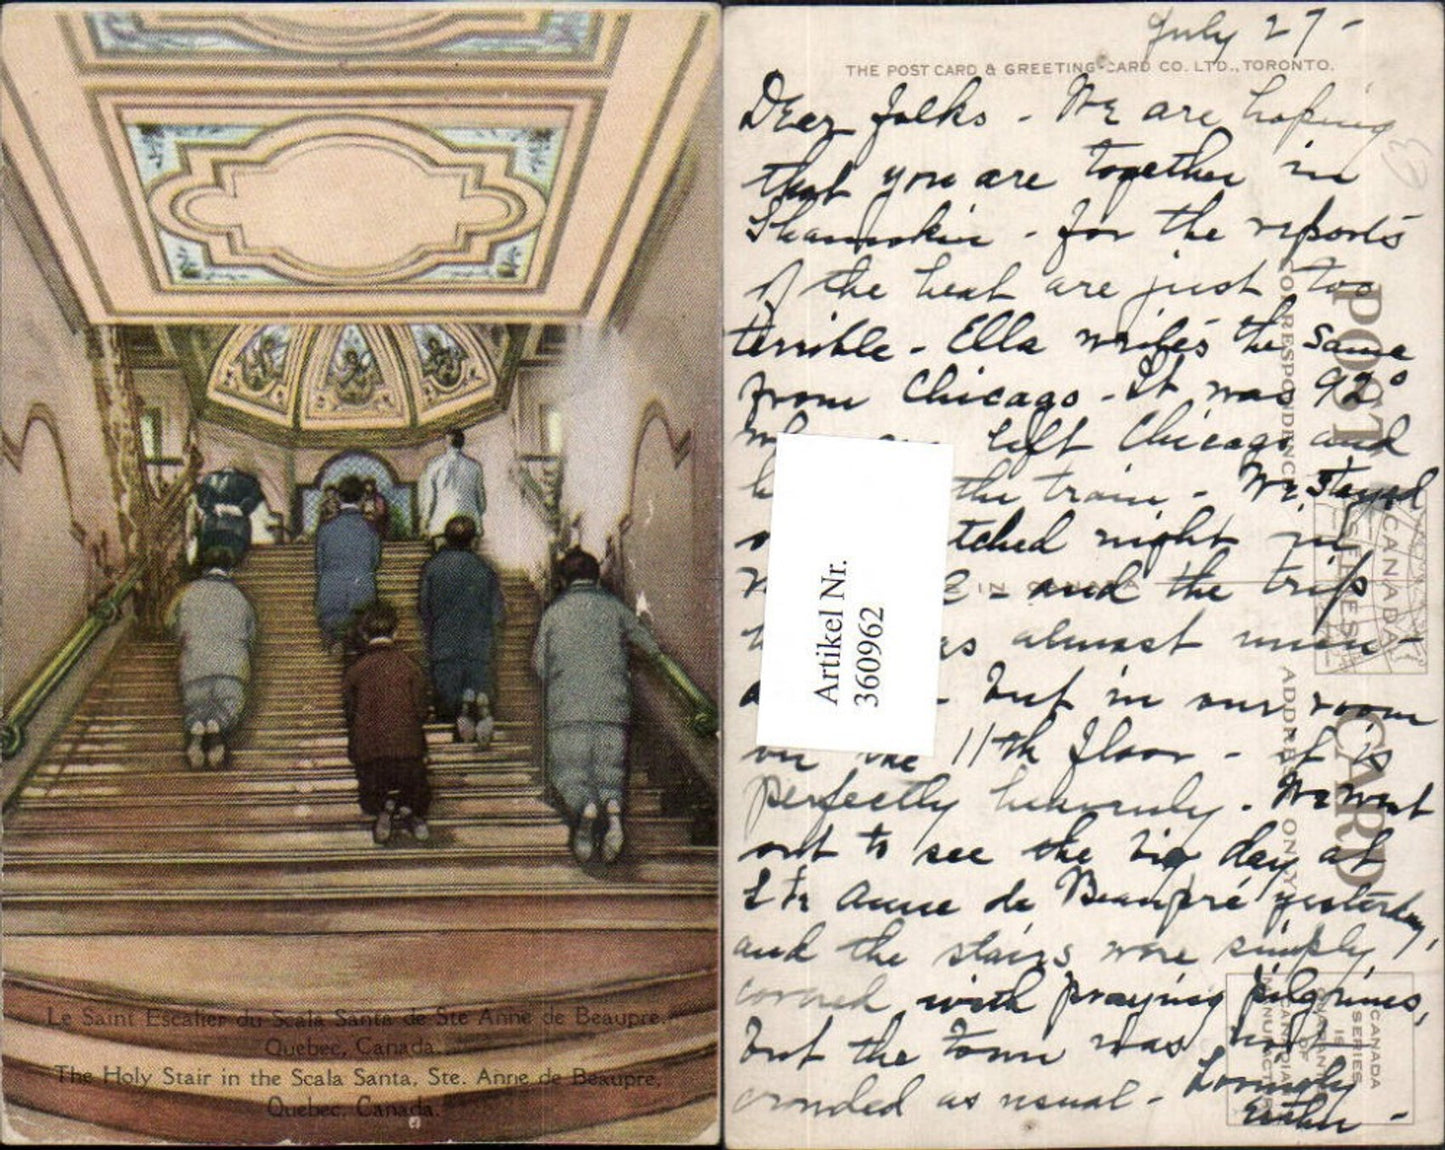 Le Saint Escalier du Scala Santa de Ste Anne de Beaupre,
Quebec, Canada.
The Holy Stair in the Scala Santa, Ste. Anne de Beaupre,
Quebec, Canada.
July 27-
THE POST CARD & GREETING CARD CO. LTD., TORONTO.
Dear folks - We are hoping
that you are together in
Shamokin - for the reports
of the heat are just too
terrible - Ella writes the same
from Chicago - It was 92°
left Chicago and
the train - We stayed
night in
- and the trip
almost
- but in our room
on the 11th floor - it is
perfectly heavenly - We went
out to see the big day at
Ste Anne de Beaupré yesterday,
and the stairs were simply
covered with praying pilgrims,
but the town was not
crowded as usual - Lovingly
Esther -
Artikel Nr.
360962
POST CARD
CORRESPONDENCE
ADDRESS ONLY
IN CANADA
CANADA
SERIES
CANADA
SERIES
IS